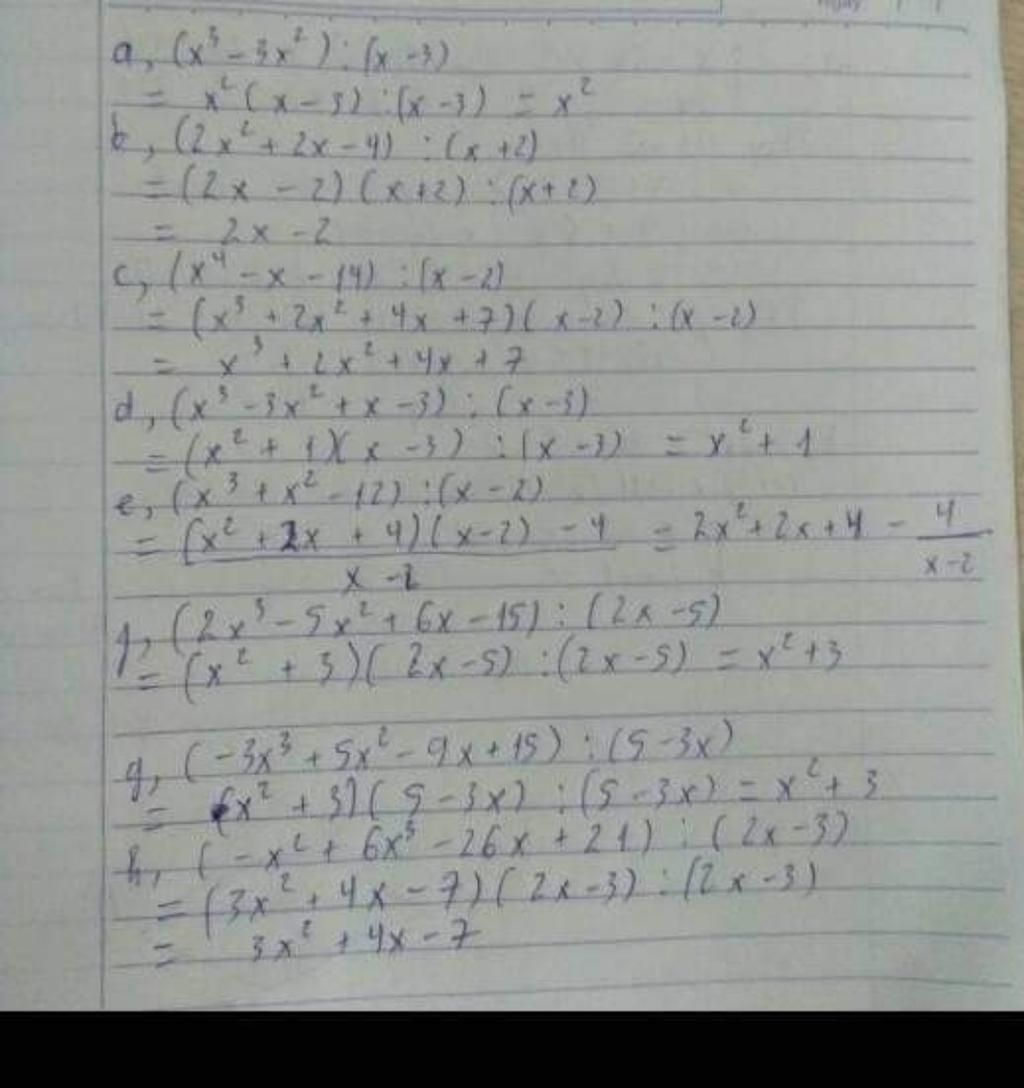 a, (x³ - 3x²) : (x - 3)
= x² (x - 3) : (x - 3) = x²
b, (2x² + 2x - 4) : (x + 2)
= (2x - 2) (x + 2) : (x + 2)
= 2x - 2
c, (x⁴ - x - 14) : (x - 2)
= (x³ + 2x² + 4x + 7)(x - 2) : (x - 2)
= x³ + 2x² + 4x + 7
d, (x³ - 3x² + x - 3) : (x - 3)
= (x² + 1)(x - 3) : (x - 3) = x² + 1
e, (x³ + x² - 12) : (x - 2)
= (x² + 2x + 4)(x - 2) - 4 / x - 2 = 2x² + 2x + 4 - 4 / x - 2
f, (2x³ - 5x² + 6x - 15) : (2x - 5)
= (x² + 3)(2x - 5) : (2x - 5) = x² + 3
g, (-3x³ + 5x² - 9x + 15) : (5 - 3x)
= (x² + 3)(5 - 3x) : (5 - 3x) = x² + 3
h, (-x² + 6x³ - 26x + 21) : (2x - 3)
= (3x² + 4x - 7)(2x - 3) : (2x - 3)
= 3x² + 4x - 7